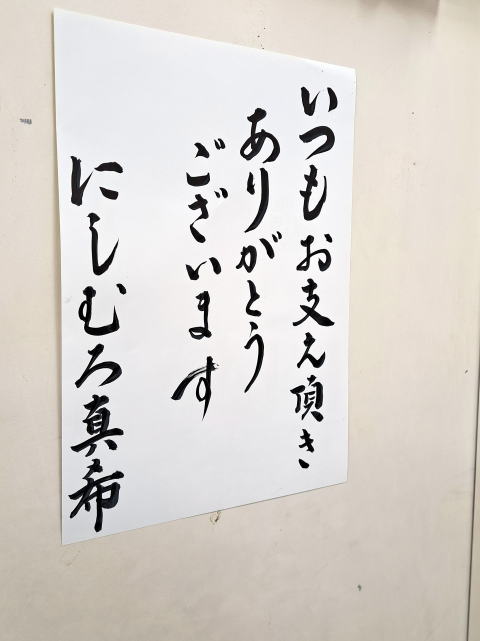 いつもお支え頂き
ありがとう
ございます
にしむろ真希